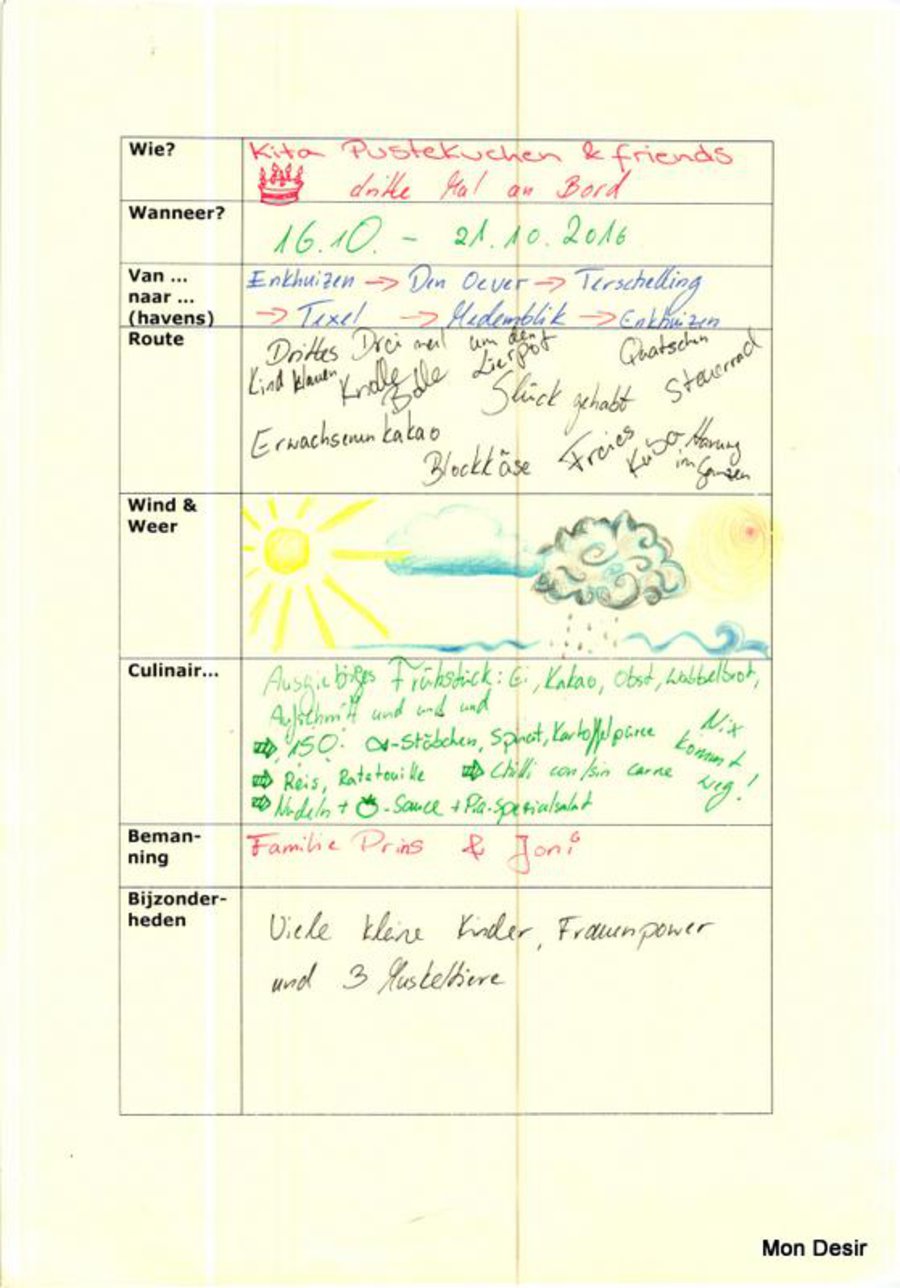 Wie?
Kita Pustekuchen & friends
dritte Mal an Bord
Wanneer?
16.10. - 21.10.2016
Van ...
naar ...
(havens)
Enkhuizen → Den Oever → Terschelling
→ Texel → Medemblik → Enkhuizen
Route
Drittes Drei mal um den
Kind klauen
Quatschen
Steuerrad
Glück gehabt
Erwachsenenkakao
Blockkäse
Freies
im Ganzen
Wind &
Weer
Culinair...
Ausgiebiges Frühstück: Ei, Kakao, Obst, Wabbelbrot,
Aufschnitt und und und
⇒ 150 -Stäbchen, Spinat, Kartoffelpüree
Nix
kommt
weg!
⇒ Reis, Ratatouille ⇒ Chilli con/sin carne
⇒ Nudeln + -Sauce + Pia-Spezialsalat
Beman-
ning
Familie Prins & Joni
Bijzonder-
heden
Viele kleine Kinder, Frauenpower
und 3 Muskeltiere
Mon Desir